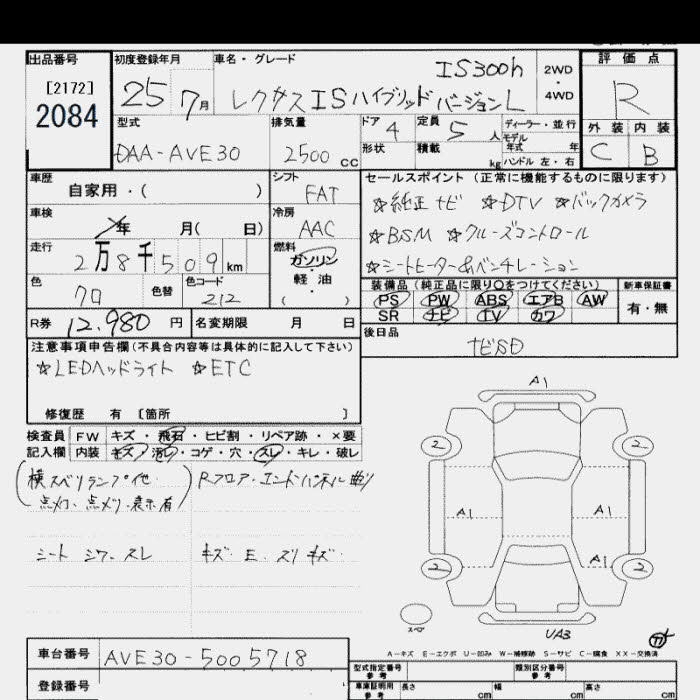 出品番号 初度登録年月 車名・グレード 評価点
[2172]
2084
25 7月
IS300h
レクサスISハイブリッド バージョンL
2WD
4WD
R
型式 排気量 ドア 定員 ディーラー・並行 外装 内装
DAA-AVE30 2500cc 4 5人
モデル年式 年
形状 積載 kg ハンドル 左・右
C B
車歴 シフト セールスポイント(正常に機能するものに限ります)
自家用・( ) FAT
☆純正ナビ ☆DTV ☆バックカメラ
車検 冷房
年 月( 日) AAC
☆BSM ☆クルーズコントロール
走行 燃料
2万8千509km ガソリン・軽油( )
☆シートヒーター&ベンチレーション
色 色替 色コード
クロ 212
装備品(純正品に限り○をつけてください) 新車保証書
PS PW ABS エアB AW 有・無
SR ナビ TV カワ
R券 12,980円 名変期限 月 日
後日品
ナビSD
注意事項申告欄(不具合内容等は具体的に記入して下さい)
☆LEDヘッドライト ☆ETC
修復歴 有 [箇所 ]
検査員 FW キズ・飛石・ヒビ割・リペア跡・×要
記入欄 内装 キズ・汚レ・コゲ・穴・スレ・キレ・破レ
(横スベリランプ他
点灯・点メツ・表示有)
Rフロア・エンドパネル曲り
シート シワ・スレ
キズ・E・スリキズ・
A1
2 2
A1 A1
A1
2 2
スペア
UA3
77
A-キズ E-エクボ U-凹み W-補修跡 S-サビ C-腐食 XX-交換済
車台番号 AVE30-5005718
登録番号
型式指定番号 参考 類別区分番号 参考
車庫証明用 参考 長さ cm 幅 cm 高さ cm